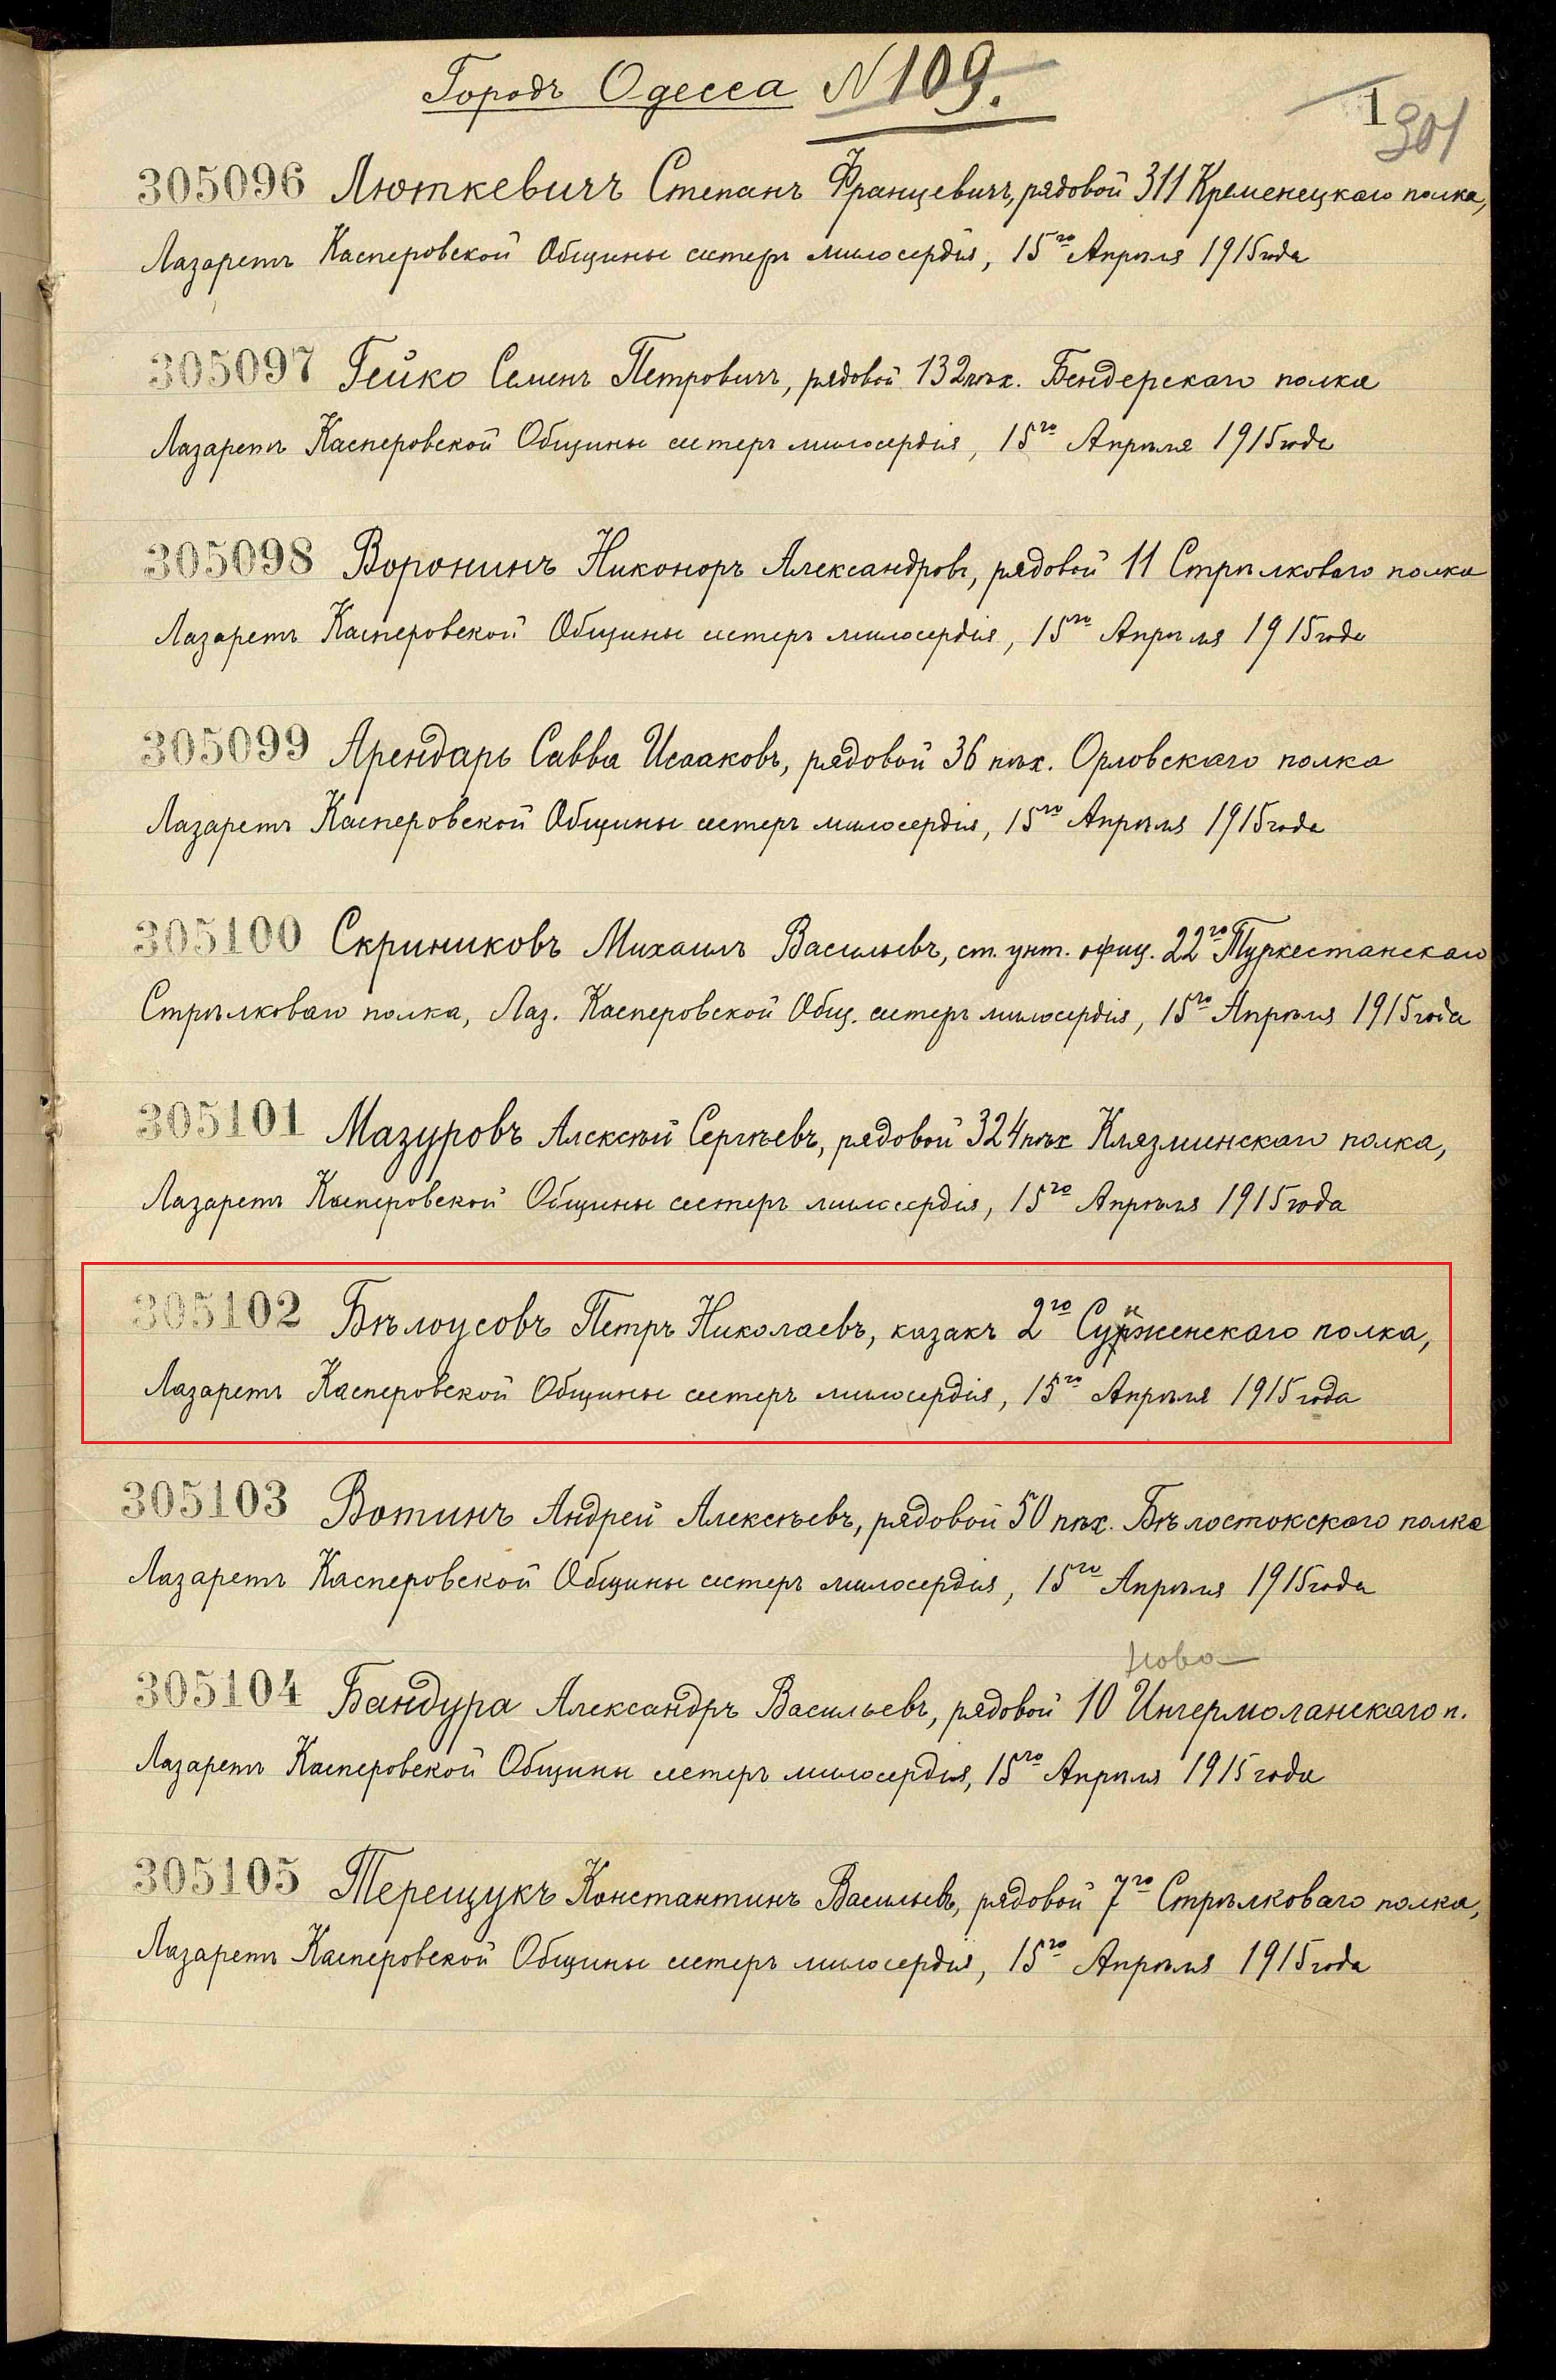 Городъ Одесса N 109.
1
301
305096 Люткевичъ Степанъ Францевичъ, рядовой 311 Кременецкаго полка,
Лазаретъ Касперовской Общины сестеръ милосердія, 15го Апрѣля 1915 года
305097 Гейко Семенъ Петровичъ, рядовой 132 пѣх. Бендерскаго полка
Лазаретъ Касперовской Общины сестеръ милосердія, 15го Апрѣля 1915 года
305098 Воронинъ Никоноръ Александровъ, рядовой 11 Стрѣлковаго полка
Лазаретъ Касперовской Общины сестеръ милосердія, 15го Апрѣля 1915 года
305099 Арендарь Савва Исааковъ, рядовой 36 пѣх. Орловскаго полка
Лазаретъ Касперовской Общины сестеръ милосердія, 15го Апрѣля 1915 года
305100 Скриниковъ Михаилъ Васильевъ, ст. унт. офиц. 22го Туркестанскаго
Стрѣлковаго полка, Лаз. Касперовской Общ. сестеръ милосердія, 15го Апрѣля 1915 года
305101 Мазуровъ Алексѣй Сергѣевъ, рядовой 324 пѣх Клязминскаго полка,
Лазаретъ Касперовской Общины сестеръ милосердія, 15го Апрѣля 1915 года
305102 Бѣлоусовъ Петръ Николаевъ, казакъ 2го Сунженскаго полка,
Лазаретъ Касперовской Общины сестеръ милосердія, 15го Апрѣля 1915 года
305103 Вотинъ Андрей Алексѣевъ, рядовой 50 пѣх. Бѣлостокскаго полка
Лазаретъ Касперовской Общины сестеръ милосердія, 15го Апрѣля 1915 года
ново
305104 Бандура Александръ Васильевъ, рядовой 10 Ингермоланскаго п.
Лазаретъ Касперовской Общины сестеръ милосердія, 15го Апрѣля 1915 года
305105 Терещукъ Константинъ Васильевъ, рядовой 7го Стрѣлковаго полка,
Лазаретъ Касперовской Общины сестеръ милосердія, 15го Апрѣля 1915 года